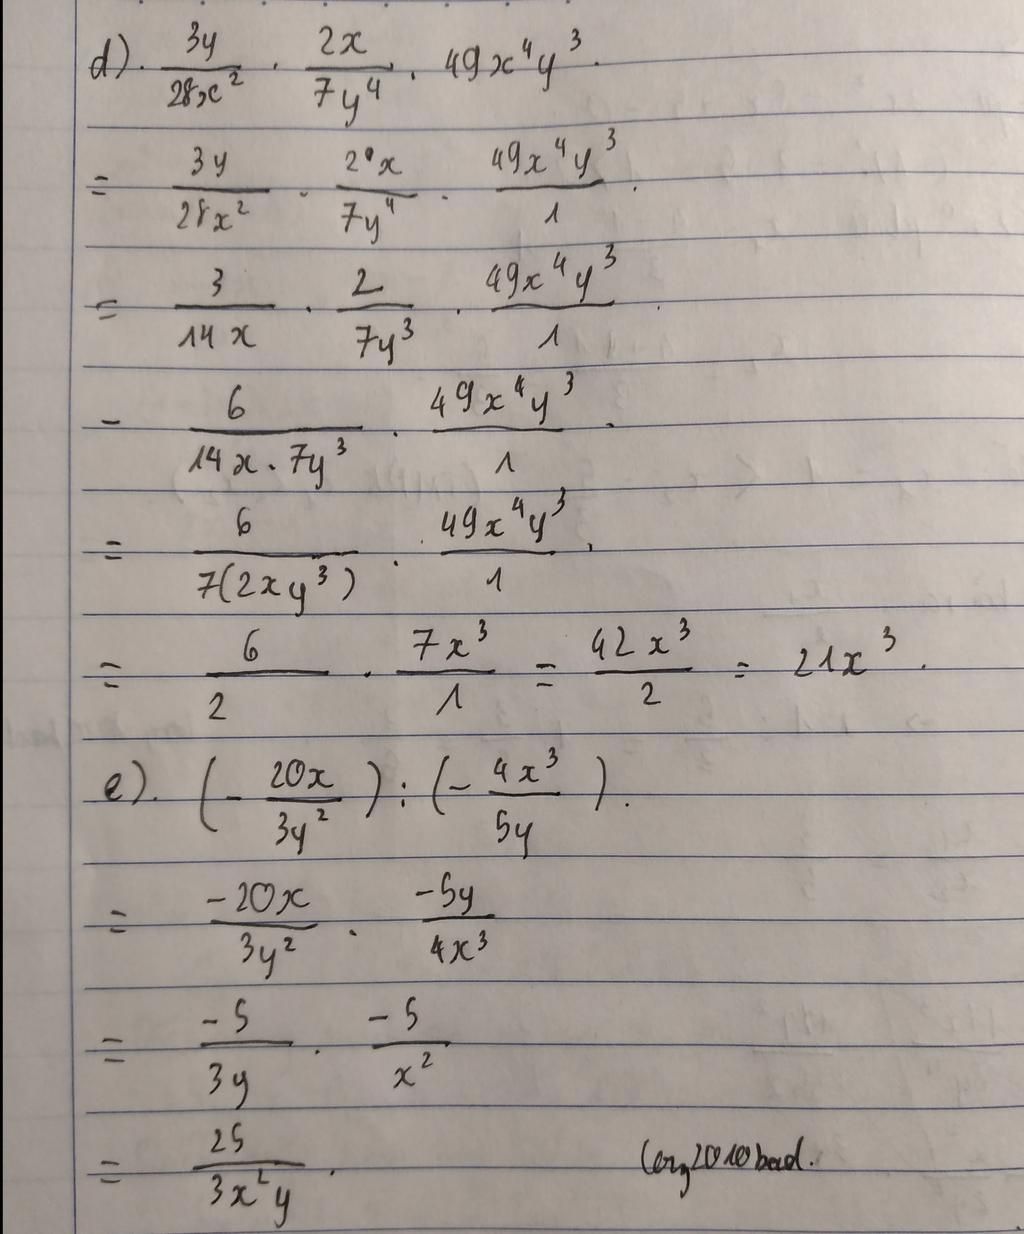 d). 3y/28x² · 2x/7y⁴ · 49x⁴y³.
= 3y/28x² · 2x/7y⁴ · 49x⁴y³/1.
= 3/14x · 2/7y³ · 49x⁴y³/1.
= 6/14x·7y³ · 49x⁴y³/1.
= 6/7(2xy³) · 49x⁴y³/1.
= 6/2 · 7x³/1 = 42x³/2 = 21x³.
e). (-20x/3y²) : (-4x³/5y).
= -20x/3y² · -5y/4x³
= -5/3y · -5/x²
= 25/3x²y.